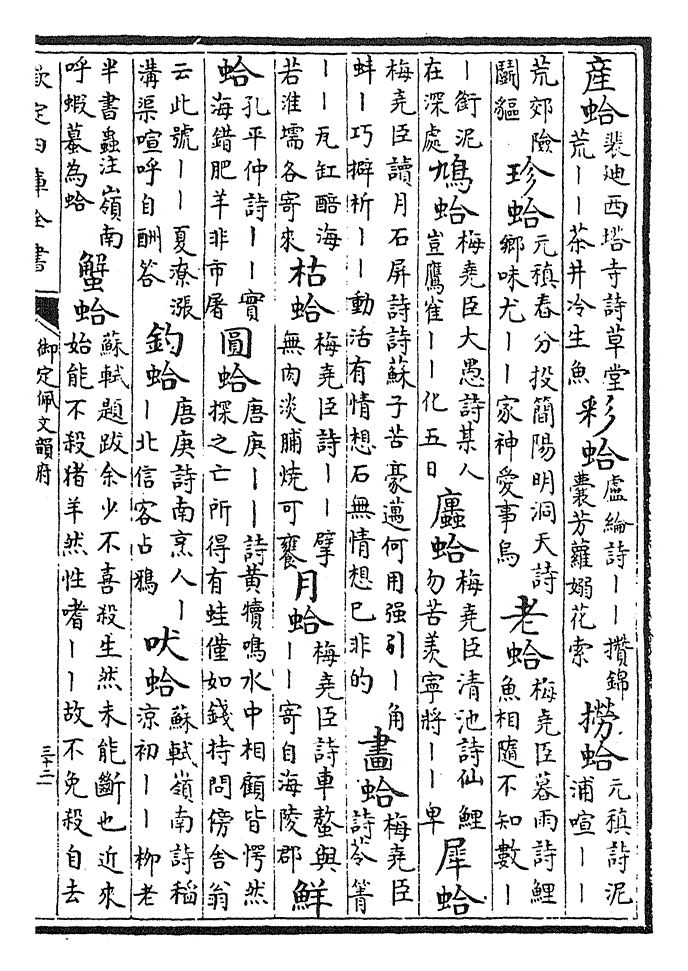 産蛤 裴迪西塔寺詩草堂荒丨丨茶井冷生魚 彩蛤 盧綸詩丨丨攢錦囊芳蘿嫋花索 撈蛤 元稹詩泥浦喧丨丨
荒郊險鬬貙 珍蛤 元稹春分投簡陽明洞天詩鄉味尤丨丨家神愛事烏 老蛤 梅堯臣暮雨詩鯉魚相隨不知數丨
丨銜泥在深處 鳩蛤 梅堯臣大愚詩某人豈鷹雀丨丨化五日 蠯蛤 梅堯臣清池詩仙鯉勿苦羨寧將丨丨卑 犀蛤
梅堯臣讀月石屏詩詩蘇子苦豪邁何用强引丨角蚌丨巧擗析丨丨動活有情想石無情想已非的 畫蛤 梅堯臣詩苓箐
丨丨瓦缸醅海若淮壖各寄來 枯蛤 梅堯臣詩丨丨擘無肉淡脯燒可饔 月蛤 梅堯臣詩車螯與丨丨寄自海陵郡 鮮
蛤 孔平仲詩丨丨實海錯肥羊非市屠 圓蛤 唐庚丨丨詩黄犢鳴水中相顧皆愕然探之亡所得有蛙僅如錢持問傍舍翁
云此號丨丨夏潦漲溝渠喧呼自酬答 釣蛤 唐庚詩南烹人丨丨北信客占鴉 吠蛤 蘇軾嶺南詩稻涼初丨丨柳老
半書蟲注嶺南呼蝦蟇為蛤 蟹蛤 蘇軾題跋余少不喜殺生然未能斷也近來始能不殺猪羊然性嗜丨丨故不免殺自去
欽定四庫全書 御定佩文韻府 三十二